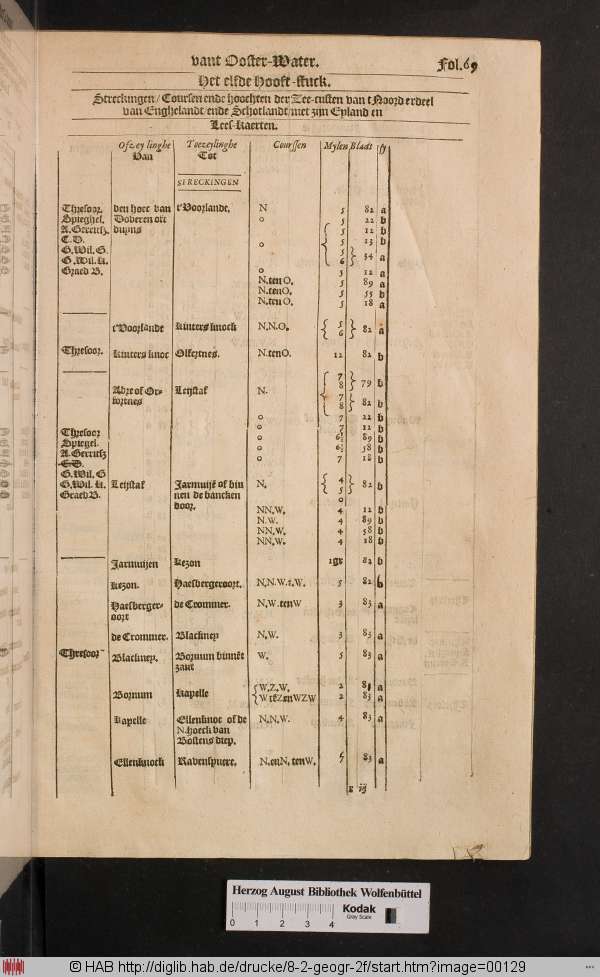 vant Ooster-Water. Fol. 69
Het elfde Hooft-stuck.
Streckingen / Coursen ende hoochten der Zee-custen van t Noorderdeel
van Enghelandt / ende Schotlandt / met zijn Eyland en
Lees-kaerten.
Ofzeylinghe Toezeylinghe Courssen Mylen Bladt
Van Tot
STRECKINGEN
Thresoor. den hoec van t'Voorlande. N 5 82 a
Spieghel. Doveren oft o 5 22 b
A. Gerritsz duyns 5 12 b
C. D. o 5 13 b
G. Wil. G. 5
G. Wil. 6 54 a
Graed B. o 5 12 a
N. ten O. 5 89 a
N. ten O. 5 55 b
N. ten O. 5 18 a
t'Voorlande kinters knock N.N.O. 5 6 82 a
Thresoor. kinters knoc Olfertnes. N. ten O. 12 82 b
7 8 79 b
Leijstaf N. 7 8 82 b
o 7 22 b
Thresoor o 7 12 b
Spiegel. o 6½ 89 b
A. Gerritsz o 6½ 58 b
C. D. o 7 18 b
G. Wil. G
G. Wil. Leijstaf Jarmuijē of bin N. 4 5 82 b
Graed B. nen de bancken o
door. NN.W. 4 12 b
N.W. 4 89 b
NN.W. 4 58 b
NN.W. 4 18 b
Jarmuijen kezon 1gr 82 b
kezon. Haesbergeroort. N,N.W.t.W. 5 82 b
Haesberger- de Crommer. N,W.tenW 3 83 a
oort
de Crommer. Blackney N,W. 3 83 a
Thresoor Blackney. Bornum binnēt W. 5 83 a
zant
Bornum kapelle W.Z.W. 2 83 a
W tēZ.enWZW 2 83 a
kapelle Ellenknoc of de N,N.W. 4 83 a
N. hoeck van
Bostens diep.
Ellenknock Ravenspuere. N.enN. tenW. 7 83 a
Herzog August Bibliothek Wolfenbüttel
0 1 2 3 4
Kodak
Gray Scale
© HAB http://diglib.hab.de/drucke/8-2-geogr-2f/start.htm?image=00129